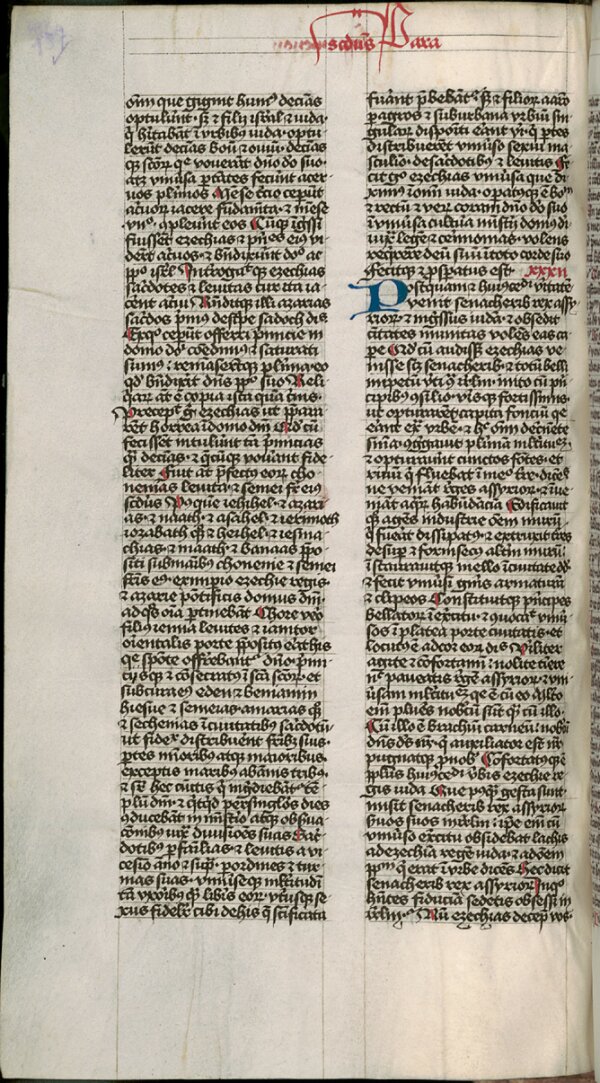 scd̄us Para
om̄i que gigit humꝰ decīas
optulūt · Sꝫ ⁊ filij isrl̄ ⁊ iuda
q̄ hītabāt ī vrbibꝫ iuda · optu
lerūt decīas boū ⁊ ouiū · decīas
qꝫ scōꝝ qͤ vouerāt dn̄o do suo
atqꝫ vniūsa portātes fecerūt acer
uos pl̄imos Mēse tc̄io ceperūt
ac̄uoꝝ iacere fūdamēta · ⁊ mēse
vijͦ · ꝯpleuerūt eos Cūqꝫ īgr̄ssi
fuissēt ezechias ⁊ pn̄cipes eiꝰ vi
derūt ac̄uos · ⁊ bn̄dixerūt do ac
pp̄lo isrl̄ Interrogauitqꝫ ezechias
sac̄dotes ⁊ leuitas cur ita ia
cerēt ac̄ui Rn̄ditqꝫ illi azarias
sac̄dos prīmꝰ de stirpe sadoch dīs
Ex qͦ ceperūt offerri prīmicie in
domo dn̄i comedimꝰ ⁊ saturati
sumꝰ ⁊ remāserūtqꝫ pl̄ima · eo
qd̄ bn̄dixerit dn̄s pp̄lo suo Reli
quiarū at̄ ē copia ista quā cernis
Precepit g̊ ezechias ut p̄pararēt
horrea ī domo dn̄i Qd̄ cū
fecissēt intulerūt tā prīmicias
qͣ decīas · ⁊ q̄cūqꝫ vouerāt fide
liter Fuit at̄ p̄fectꝰ eoꝝ cho
nenias leuita · ⁊ semei fr̄ eiꝰ
scd̄us Post que iehihel · ⁊ azari
as · ⁊ naath · ⁊ asahel · ⁊ ierimoth
iozabath qꝫ ⁊ heliel · ⁊ iesma
chias · ⁊ maath · ⁊ banaas p̄po
siti sub manibꝫ choneme ⁊ semei
fr̄is eiꝰ ex imperio ezechie regis ·
⁊ azarie pōtificis domus dn̄i
ad qͦs oīa ꝑtinebāt Chore vͦ
filiꝰ iemna leuites ⁊ ianitor
orientalis porte p̄positꝰ erat his
que spōte offerebant dn̄o · prīmi
cijsqꝫ ⁊ ꝯsecratis ī sc̄a scōꝝ · et
sub cura eiꝰ eden ⁊ beniamin
hiesue ⁊ semeias · amarias qꝫ
⁊ sechenias ī ciuitatibꝫ sac̄dotū
ut fidelr̄ distribuerent fr̄ibꝫ suis ·
partes minoribꝫ atqꝫ maioribus
exceptis maribꝫ ab ānis tribꝫ ·
⁊ sr̄ hec cunctis qui īgrediebāt tē
plū dn̄i · ⁊ qͥcqͥd ꝑ singulos dies
ꝯducebat ī minist̄io atqꝫ obser̄ua
cionibꝫ iuxͣ diuisiones suas Sac̄
dotibꝫ ꝑ familias · ⁊ leuitis a vi
cesimo āno ⁊ supͣ · ꝑ ordines ⁊ tur
mas suas · vniuerseqꝫ ml̄titudi
tā vxoribꝫ qͣ libīs eoꝝ vtͥusqꝫ se
xus fidelr̄ cibi de hijs que sc̄ificata
fuerant p̄bebāt̄ · Sꝫ ⁊ filioꝝ aarō
ꝑ agros ⁊ suburbana vrbiū sin
gulaꝝ dispositi erant viri · qui ꝑtes
distribuerēt vniūso sexui ma
sculino · de sac̄dotibꝫ ⁊ leuitis Fe
cit g̊ ezechias vniūsa que di
ximꝰ ī om̄i iuda · opatusqꝫ ē bonū
⁊ rectū ⁊ verū coram dn̄o do suo
ī vniūsa cultura minist̄ij domꝰ dn̄i
iuxͣ legē ⁊ cerimonias · volens
req̄rere deū suū ī toto corde suo
fecitqꝫ ⁊ ꝓsperatus est · xxxii
Postquam ⁊ huiuscemodi v̄itatē
venit senacherib rex assy
rioꝝ · ⁊ īgr̄ssus iuda · ⁊ obsedit
ciuitates munitas volēs eas ca
pe Qd̄ cū audisset ezechias ve
nisse sꝫ senacherib · ⁊ totū belli
īpetū vti ꝯͣ ihr̄lm · inito cū prī
cipibꝫ ꝯsilio · virisqꝫ fortissimis
ut opturarēt capita fonciū que
erant exͣ vrbē · ⁊ hͦ om̄i decernēte
sn̄ia · ꝯgregauit plimā ml̄titudinē
⁊ opturauerūt cunctos fōtes · et
riuū qui fluebat ī mediͦ tr̄e · dicētes
ne veniāt reges assyrioꝝ · ⁊ inue
niāt aquaꝝ habūdācia Edificauit
qꝫ agens industrie oēm murū ·
qui fuerat dissipatꝰ · ⁊ extruxit t̄res
desuꝑ · ⁊ forinsecꝰ alterū murū ·
ī staurauitqꝫ mello ī ciuitate dd̄
⁊ fecit vniūsi gn̄is armaturā
⁊ clipeos Constituitqꝫ prīcipes
bellatoꝝ ī exercitu · ⁊ ꝯuocauit vniū
sos ī platea porte ciuitatis · et
locutꝰ ē ad cor eoꝝ dīs Viriliter
agite ⁊ ꝯfortamī · nolite timere
nec paueatis regē assyrioꝝ · ⁊ vni
ūsam ml̄titudinē que ē cū eo Multo
em̄ plures nobiscū sūt qͣ cū illo ·
Cū illo ē brachiū carneū · nobiscū
dn̄s ds̄ nr̄ · qui auxiliator est nr̄
pugnatqꝫ ꝓ nob̄ Cōfortatusqꝫ ē
pp̄lus huiuscemodi v̄bis ezechie re
gis iuda Que postqͣ gesta sunt ·
misit senacherib rex assyrioꝝ
suos suos in ihrl̄m · ipe em̄ cū
vniūso exercitu obsidebat lachis
ad ezechiā regē iuda · ⁊ ad oēm
pp̄lm qui erat ī vrbe dicēs Hec dicit
senacherib rex assyrioꝝ In quo
hn̄tes fiduciā sedetis obsessi in
ihrl̄m · Nū ezechias decepit vos ·